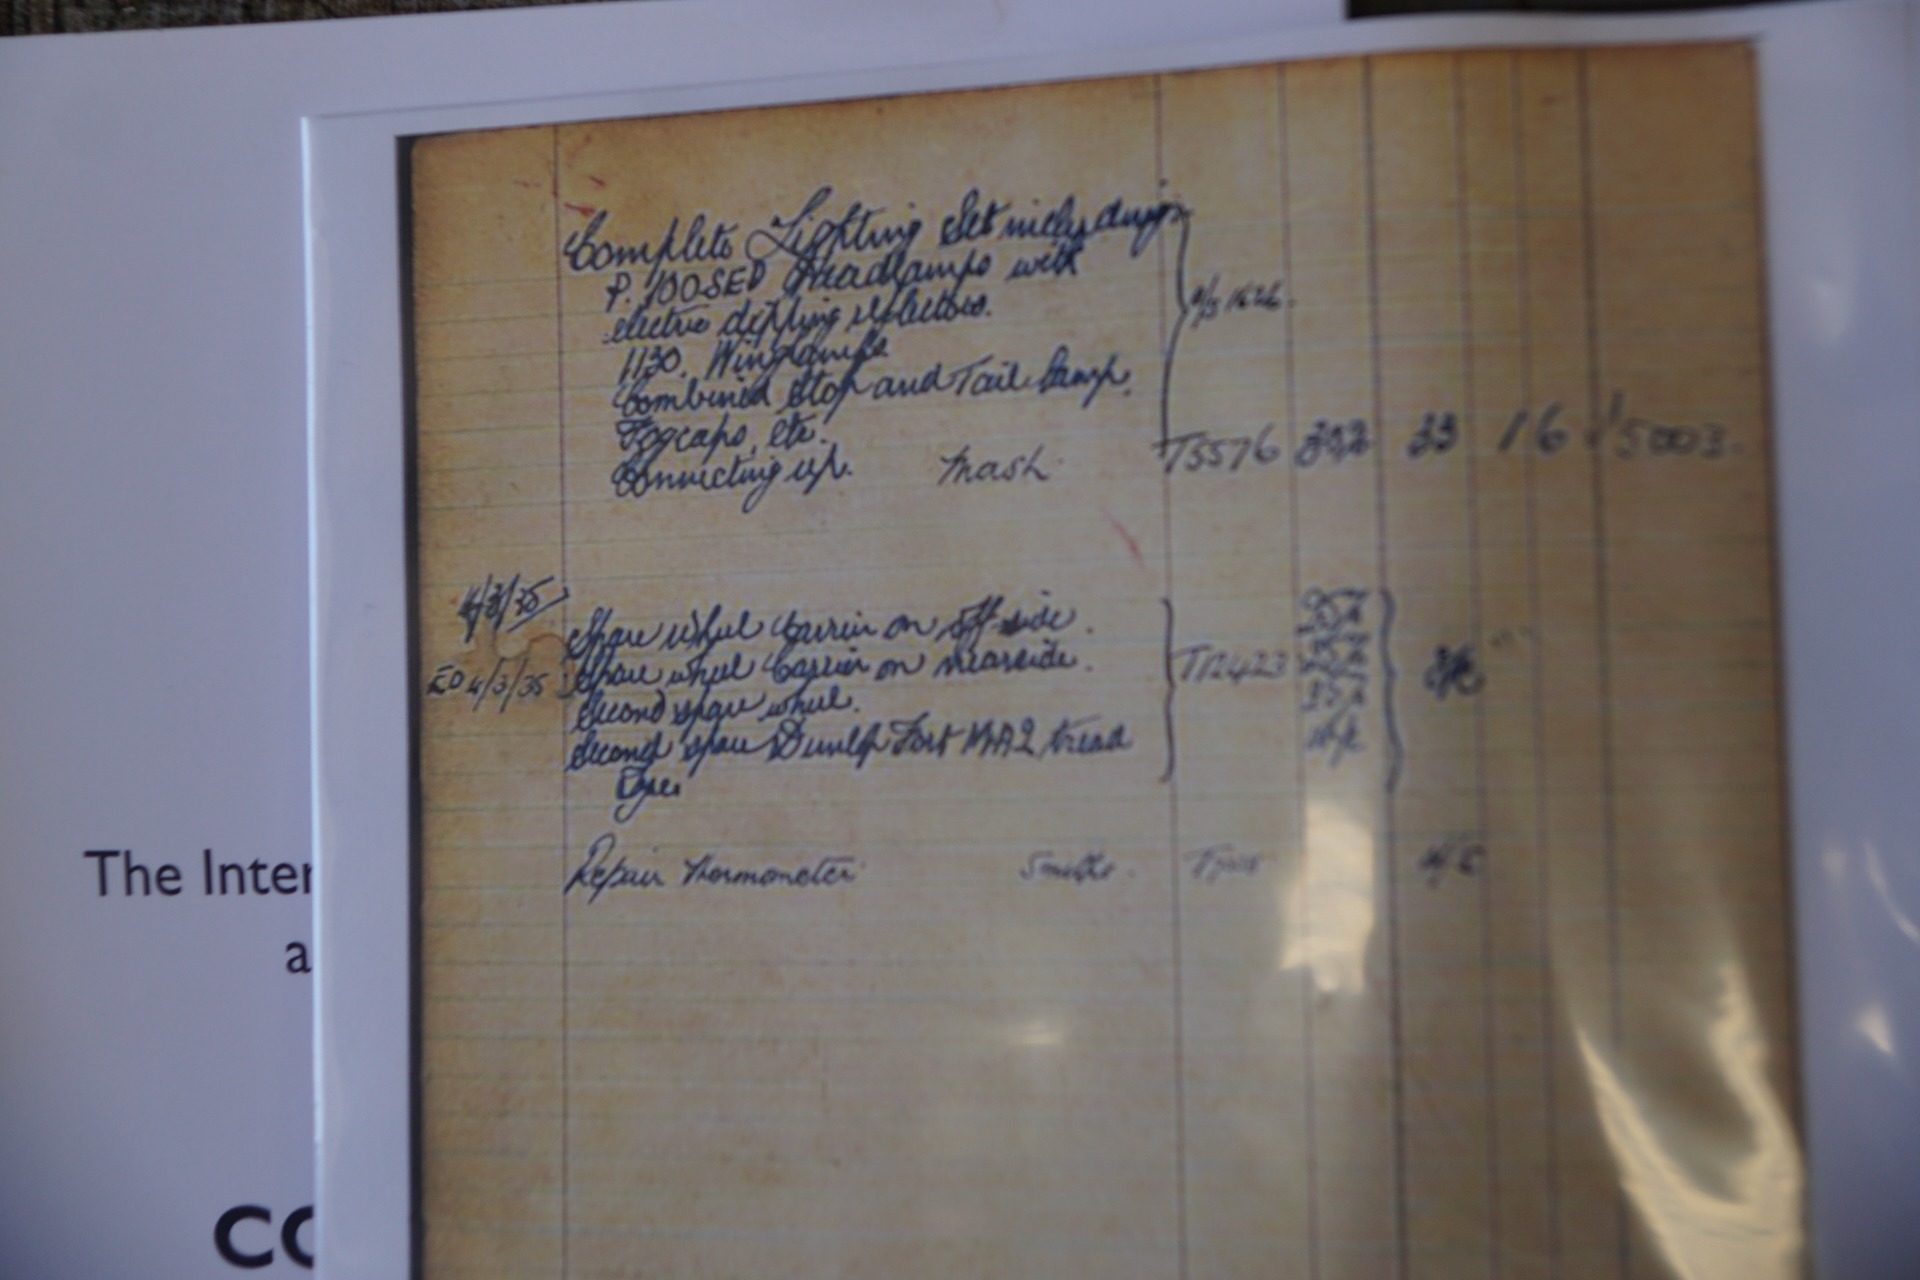 Complete Lighting Set including
P. 100SED Headlamps with
electric dipping reflectors.
1130. Winglamps
Combined Stop and Tail Lamp.
Fogcaps, etc.
Connecting up. T5576 33 16 15003.
4/3/35
Spare wheel Carrier on off side.
ED 4/3/35 Spare wheel Carrier on nearside. T12423
Second spare wheel.
Second spare Dunlop Fort tread
Tyre
Repair thermometer Smiths.
The Inter
a
CO